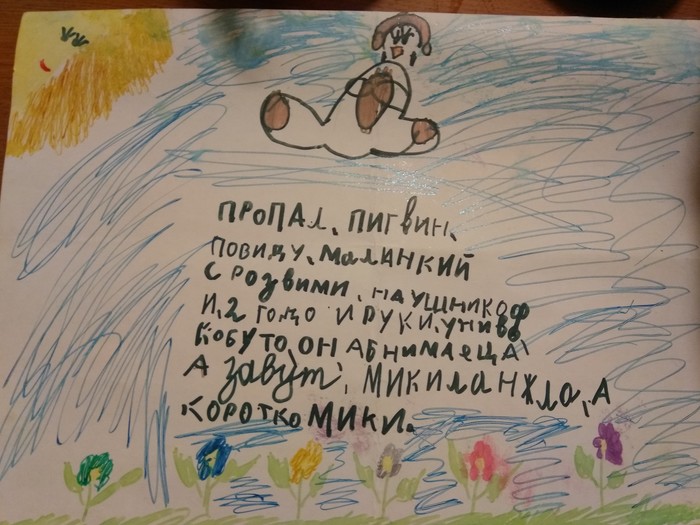 ПРОПАЛ. ПИГВИН.
ПОВИДУ. МаЛАНКИЙ
С РОЗВИМИ. НАУШНИКОФ
И. 2 ГОДО И РУКИ. УНИВО
КОБУТО ОН АБНИМАЕЦА
А ЗАВУТ, МИКИЛАНЖЛА, А
КОРОТКО МИКИ.